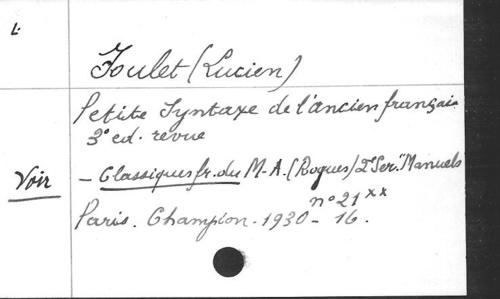 L.
Foulet (Lucien)
Petite Syntaxe de l'ancien français
3° ed. revue
Voir
- Classiques fr. du M-A. (Roques) 2° Ser. "Manuels
n° 21 **
Paris. Champion. 1930 - 16.